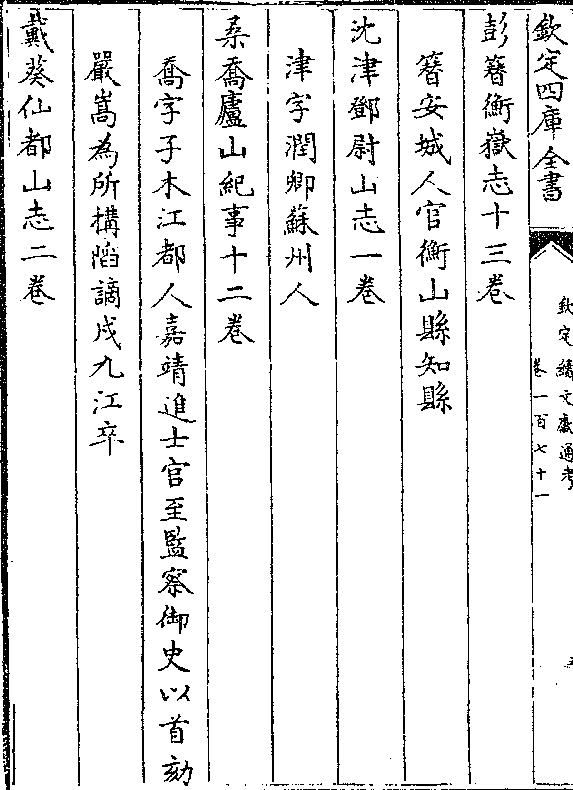 欽定四庫全書
欽定續文獻通考
卷一百七十一
彭簪衡嶽志十三卷
簪安城人官衡山縣知縣
沈津鄧尉山志一卷
津字潤卿蘇州人
桑喬廬山紀事十二卷
喬字子木江都人嘉靖進士官至監察御史以首劾
嚴嵩為所構䧟謫戍九江卒
戴葵仙都山志二卷